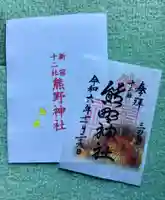 新宿
十二社
熊野神社
奉拝
熊野神社
令和六年十二月